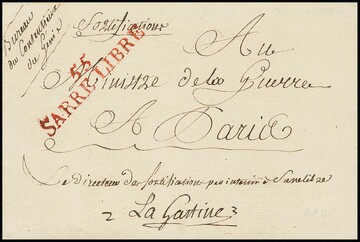 Bureau
du Contentieux
du Génie
fortifications
55
SARRE LIBRE
Au
Ministre de la Guerre
A Paris
Le directeur des fortifications par interim à Sarrelibre
La Gastine